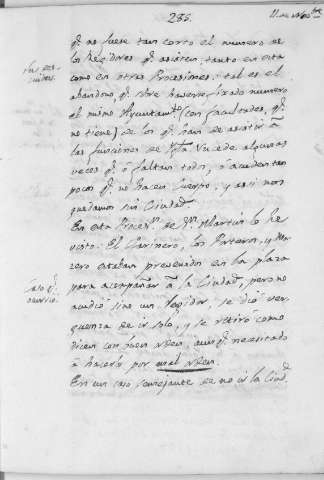 285.
11. de Nov.bre
q.e no fuese tan corto el numero de
los Regidores q.e asisten, tanto en esta
como en otras Procesiones: tal es el
abandono, q.e sobre haverse fixado numero
el mismo Ayuntam.to (con facultades, q.e
no tiene) de los q.e han de asistir à
las funciones de Ygla. Sucede algunas
veces q.e ó faltan todos, ó acuden tan
pocos q.e no hacen Cuerpo, y asi nos
quedamos sin Ciudad.
En esta Proces.n de S.n Martin lo he
visto: El Clarinero, los Porteros, y Ma
zero estaban prevenidos en la plaza
para acompañar à la Ciudad, pero no
acudió sino un Regidor, se dió ver
guenza de ir solo, y se retiró como
dicen con buen orden, aunq.e necesitado
à hacerlo por mal orden.
En un caso semejante de no ir la Ciud.d
Caso q.e
ocurrió.